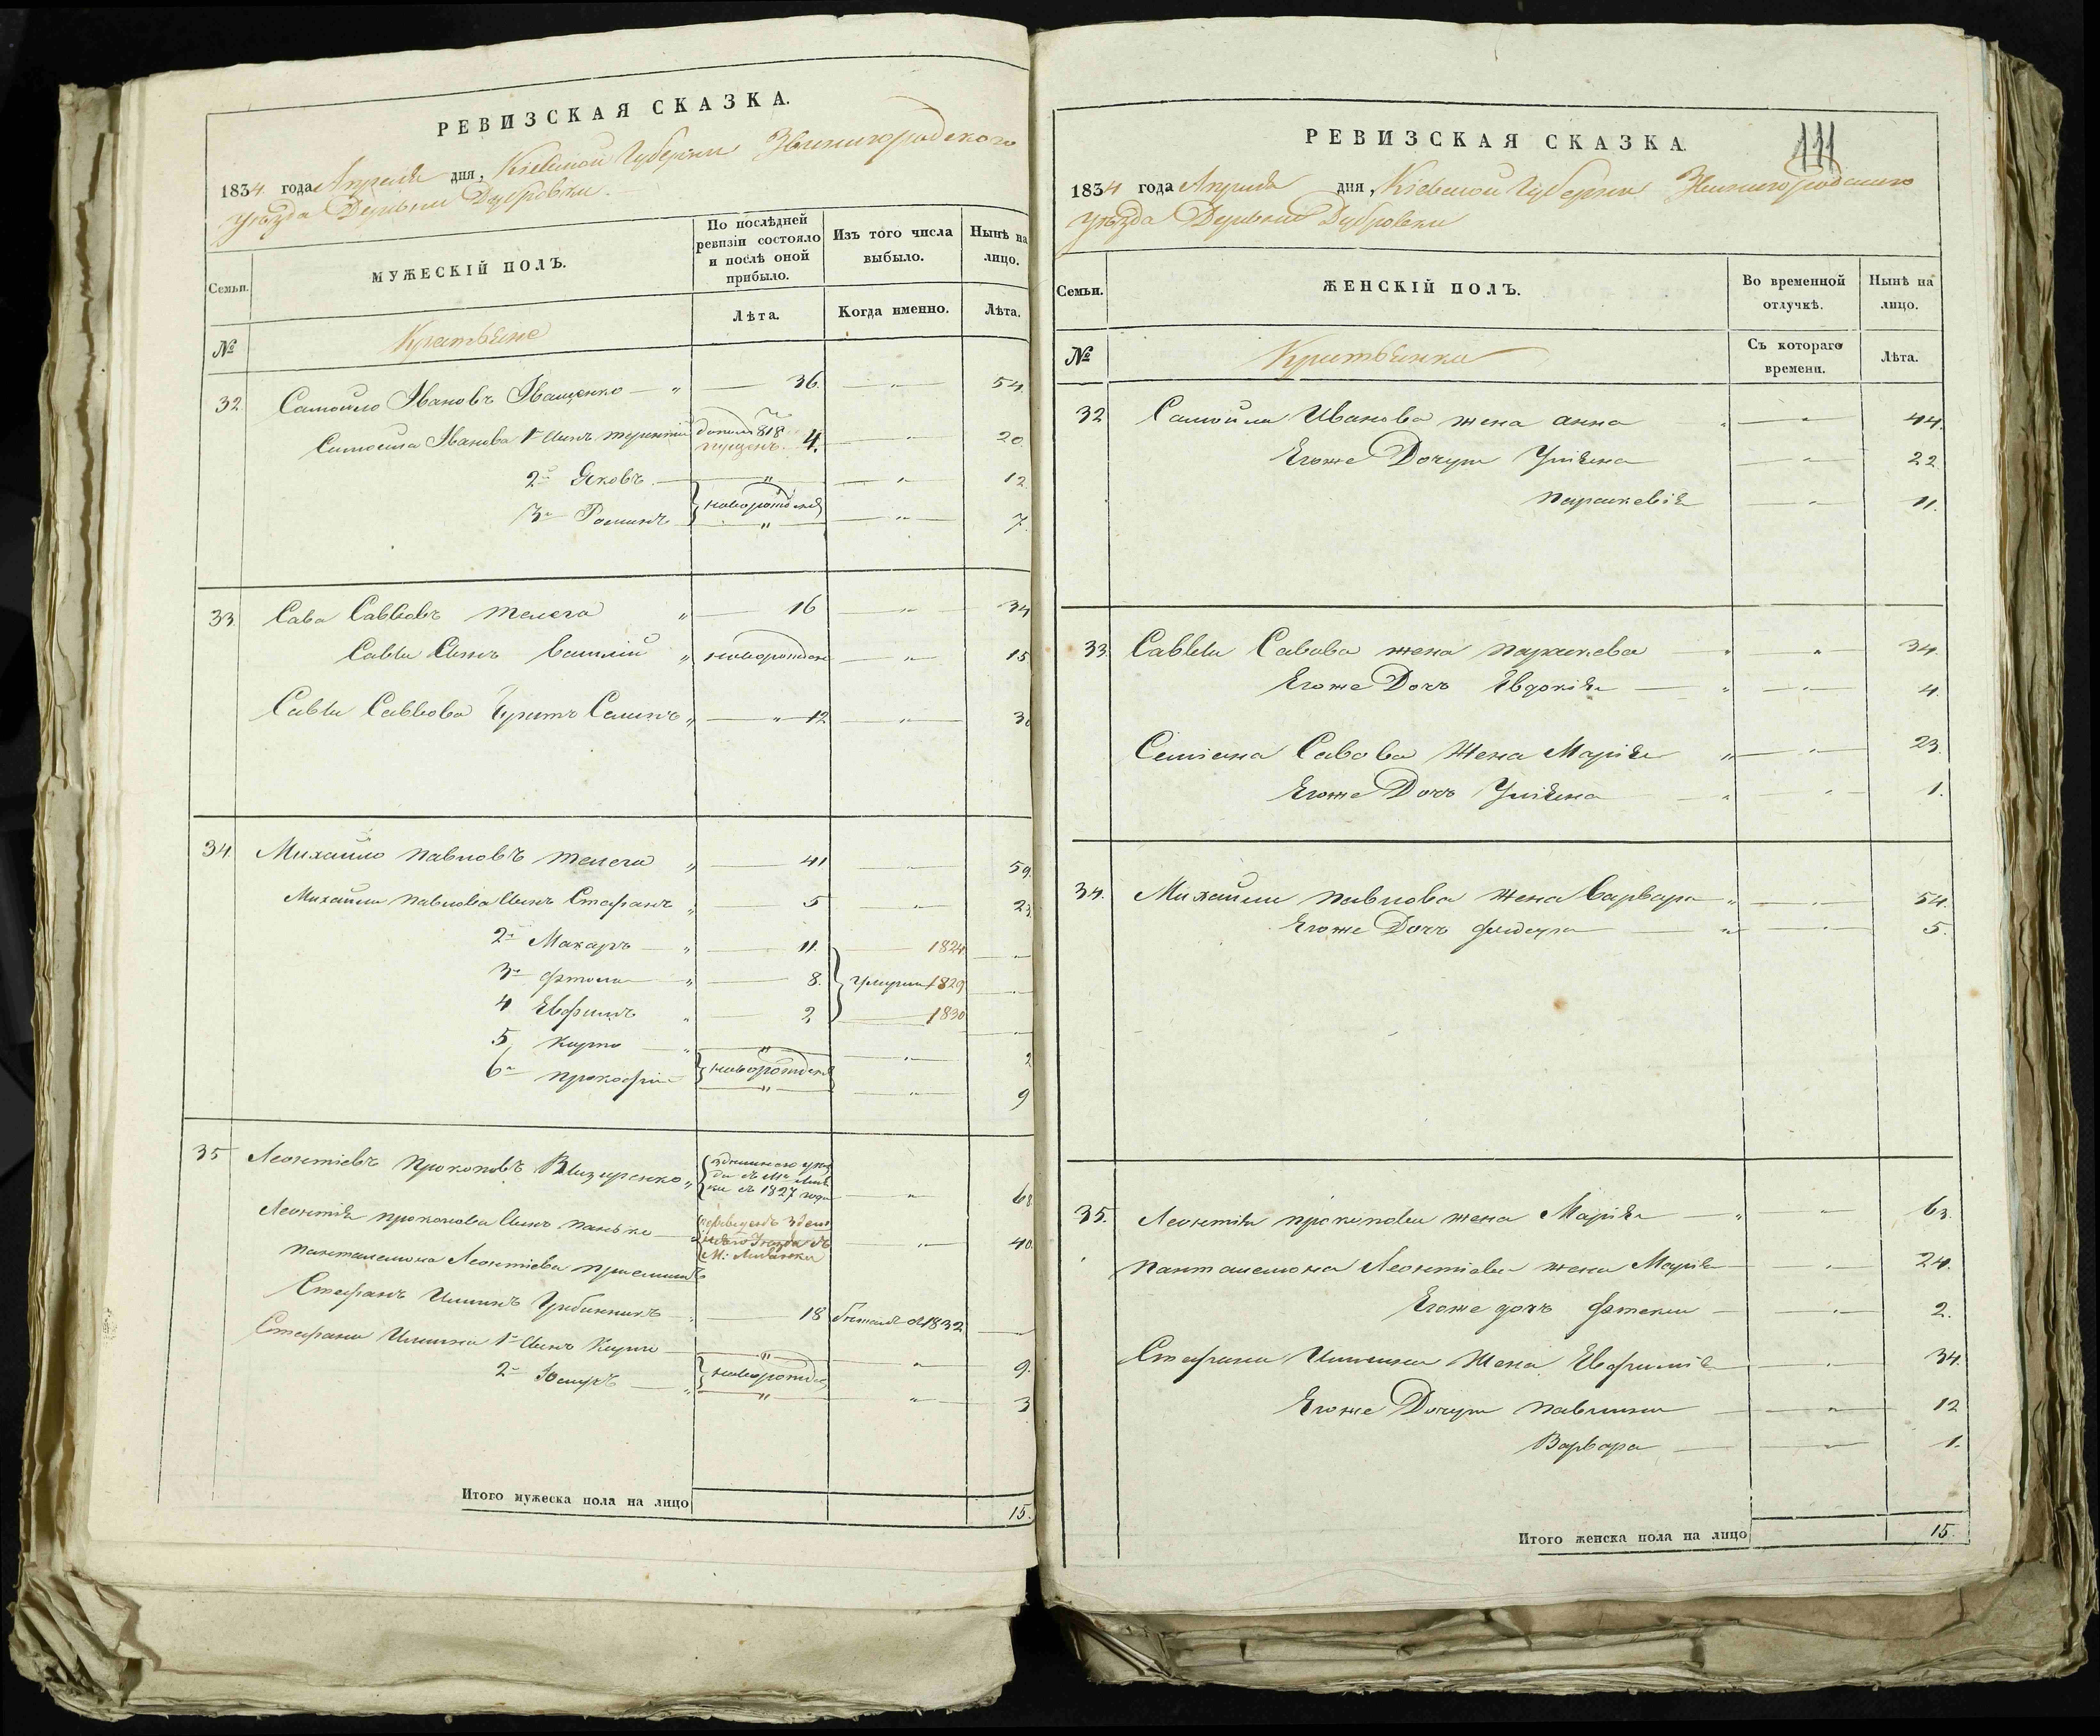 РЕВИЗСКАЯ СКАЗКА.
1834 года Апреля дня, Кіевской Губерніи Звенигородского
уѣзда Деревни Дубровки
Семьи.
МУЖЕСКІЙ ПОЛЪ.
По послѣдней ревизіи состояло и послѣ оной прибыло.
Изъ того числа выбыло.
Нынѣ на лицо.
№
Лѣта.
Когда именно.
Лѣта.
32 Самойло Ивановъ Іващенко 36. 54.
Самойла Іванова 1й Сынъ Терентій 4. 20
2й Яковъ 12
новорожден
3й Романъ 7.
33. Сава Саввовъ Телега 16 34
Саввы Сынъ Василій новорожден 15
Саввы Саввова Братъ Семенъ 12
34. Михайло Павловъ Телега 41 59.
Михайлы Павлова Сынъ Стефанъ 5 23
2й Макаръ 11. 1824
3й 8. умерли 1829
4 Евфимъ 2 1830
5 Карпо 2
новорожден
6й Прокофій 9
35 Леонтіевъ Прокоповъ
съ 1827 года
Леонтія Прокопова Сынъ 40.
М: Лысянки
Пантелемона Леонтіева приемышъ
Стефанъ 18 1832
Стефана 1й Сынъ Карпо 9.
новорожд
2й 3
Итого мужеска пола на лицо 15.
РЕВИЗСКАЯ СКАЗКА
111
1834 года Апреля дня, Кіевской Губерніи Звенигородского
уѣзда Деревни Дубровки
Семьи.
ЖЕНСКІЙ ПОЛЪ.
Во временной отлучкѣ.
Нынѣ на лицо.
№
Съ котораго времени.
Лѣта.
32 Самойлы Иванова жена Анна 44.
Егоже Дочери Уліяна 22
Параскевія 11.
33. Саввы Савова жена Параскева 34.
Егоже Дочь Евдокія 4.
Семіона Савова Жена Марія 23.
Егоже Дочь Уліяна 1.
34. Михайлы Павлова Жена Варвара 54.
Егоже Дочь 5.
35. Леонтія Прокопова жена Марія 63.
Пантелемона Леонтіева жена Марія 24.
Егоже дочь 2.
Стефана Жена Евфимія 34.
Егоже Дочери Павлина 12
Варвара 1.
Итого женска пола на лицо 15.